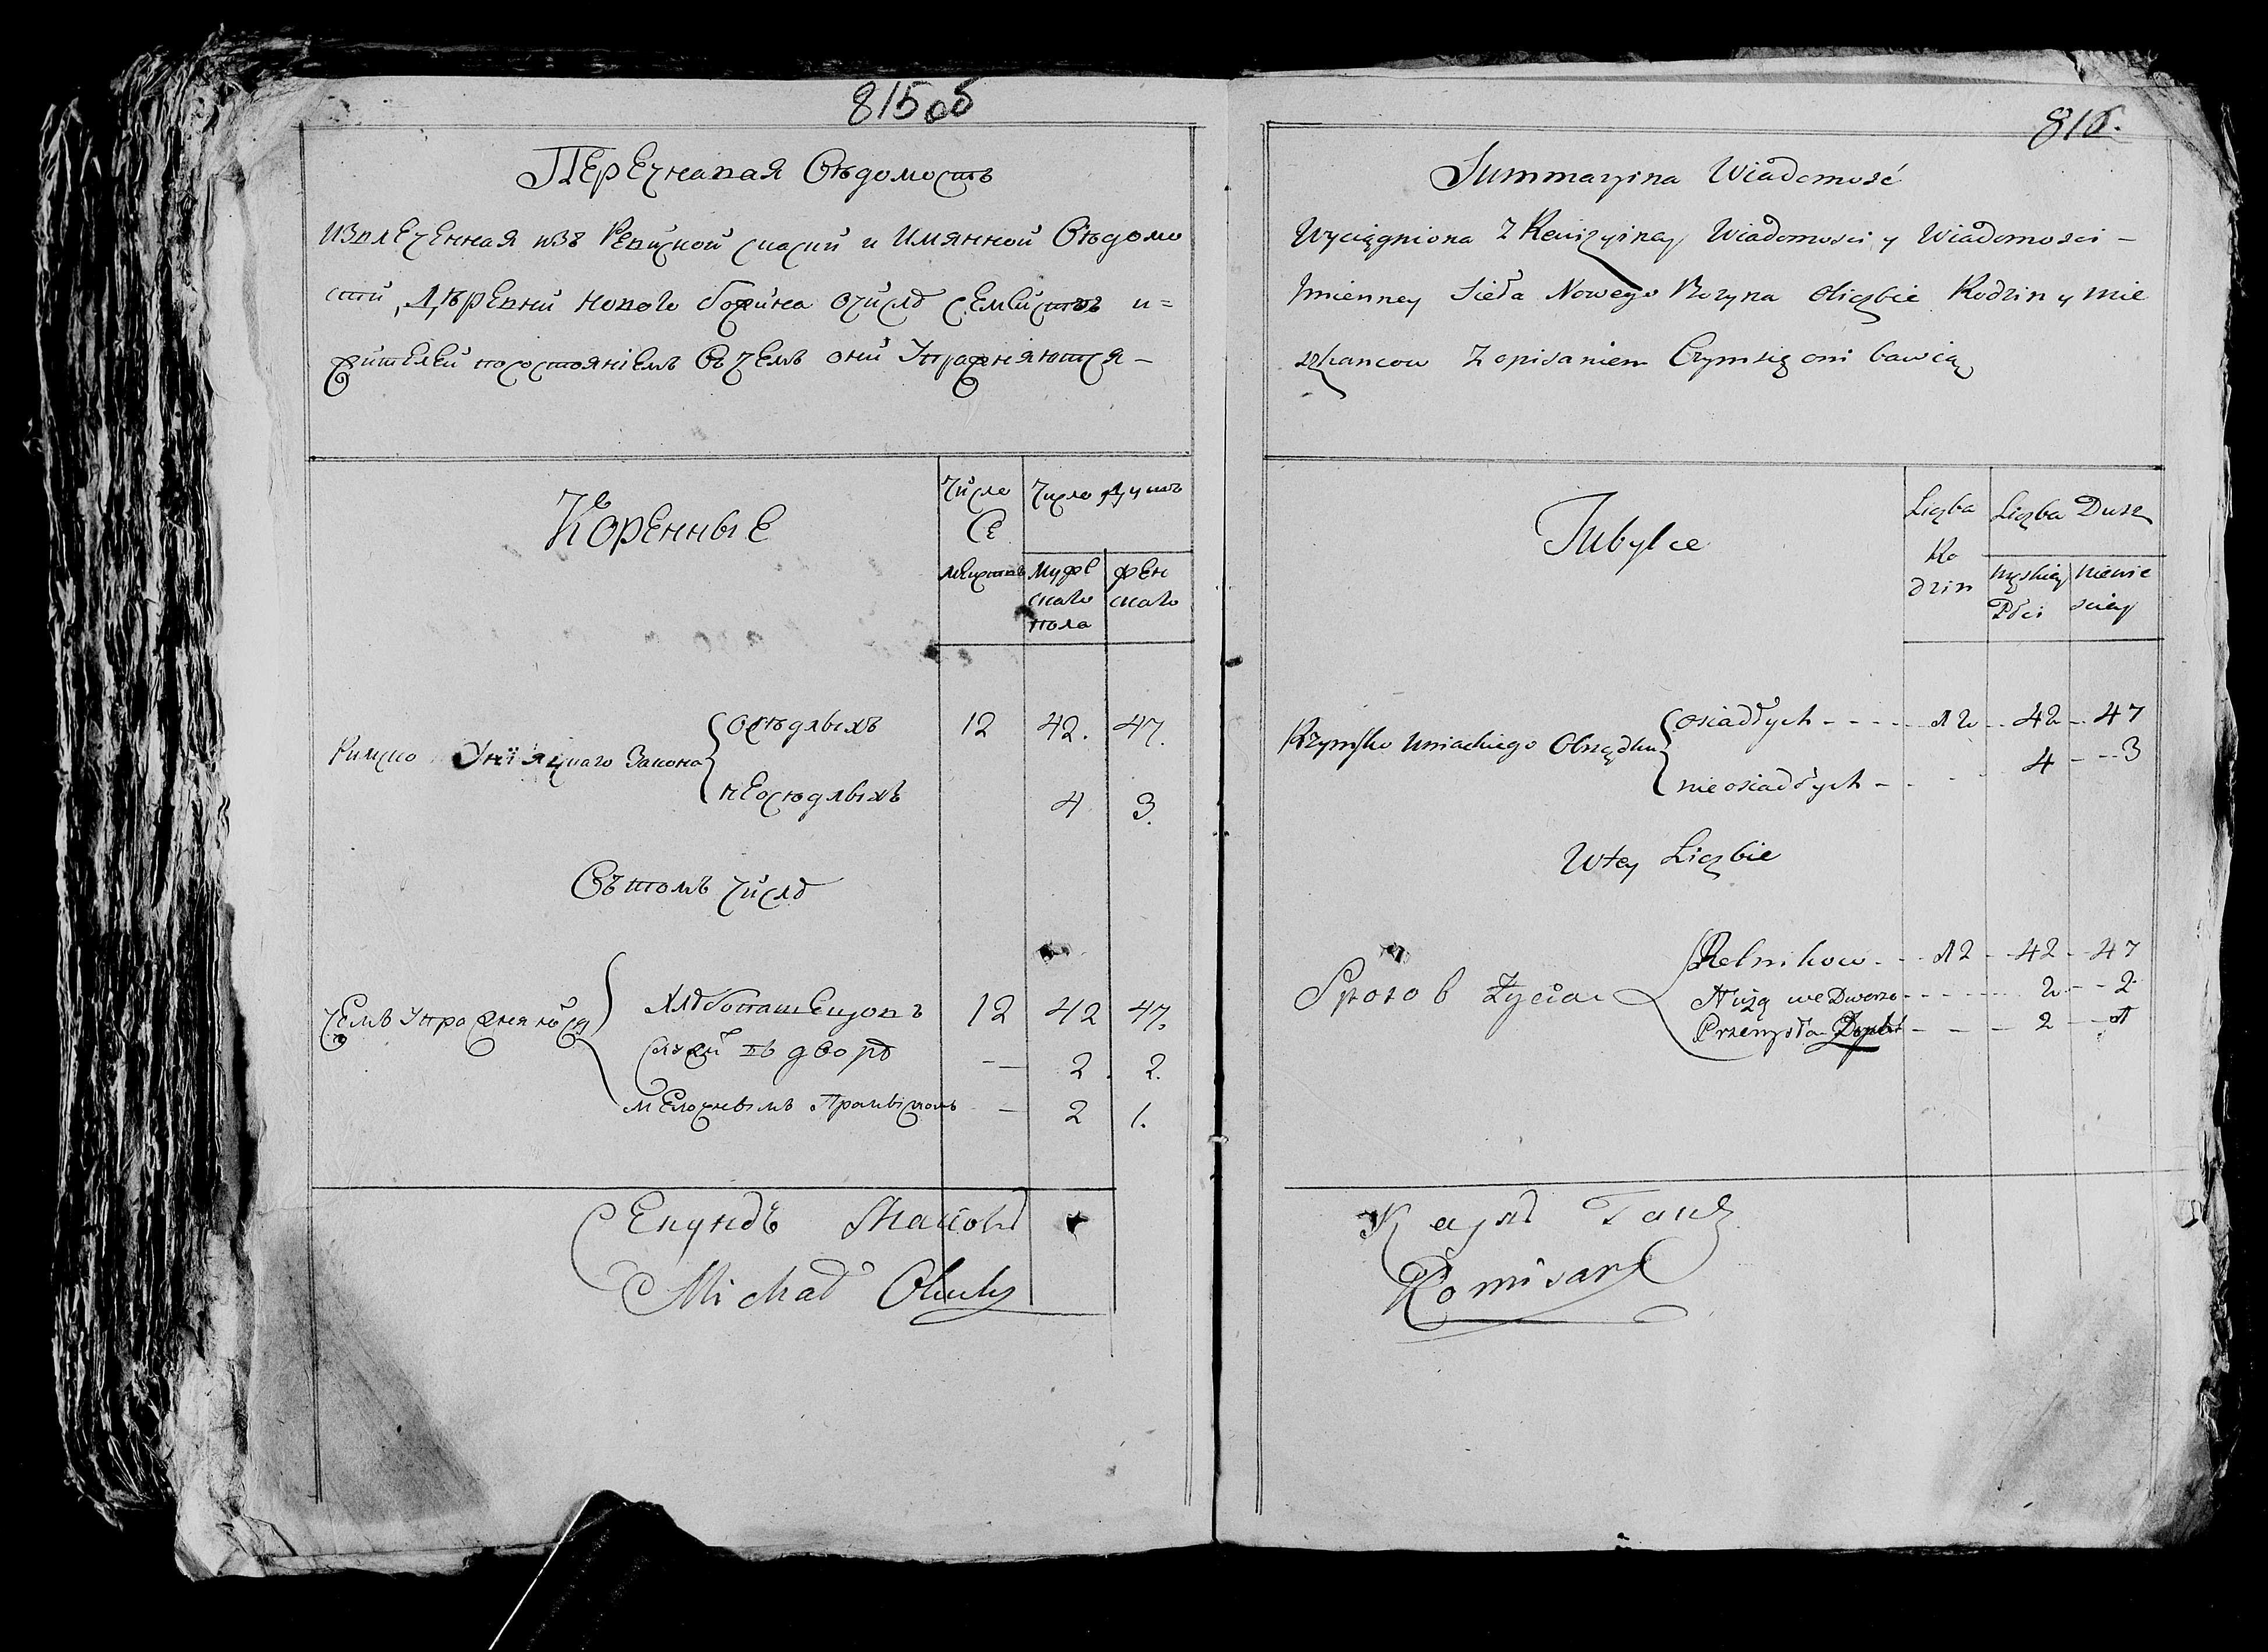 815об
Перечневая Вѣдомость
извлеченная изъ Ревиской скаски и Имянной Вѣдомо
сти, Деревни Нового Борина о числѣ семействъ и=
жителей посостояніемъ Въ чемъ они Упражняются –
Коренные
Число
Се
мействъ
Число Душъ
Муже
скаго
пола
жен
скаго
Римско Унїяцкаго Закона
осѣдлыхъ 12 42. 47.
неосѣдлыхъ 4 3.
Въ томъ числѣ
чемъ Упражняются
Хлѣбопашецовъ 12 42 47.
Служи въ дворѣ — 2. 2.
мелочнымъ Промысломъ — 2 1.
Michał
816.
Summaryina Wiadomość
Wyciągniona Z Rewizyiney Wiadomosci y Wiadomosci –
Imienney Sieła Nowego Boryna Oliczbie Rodzin y mie
szkancow Z opisaniem Czymsię oni bawią
Tubylce
Liczba
Ro
dzin
Liczba Dusz
męskiey
Płci
niewie
sciey
Rzymsko Uniackiego Obrządku
osiadłych - - - - 12 - 42 - 47
nieosiadłych - - - 4 - - 3
W tey Liczbie
Sposob Zycia
Rolnikow - - 12 - 42 - 47
Służą we Dworze - - - - 2 - - 2
Przemysła - - - 2 - 1
Komisarz